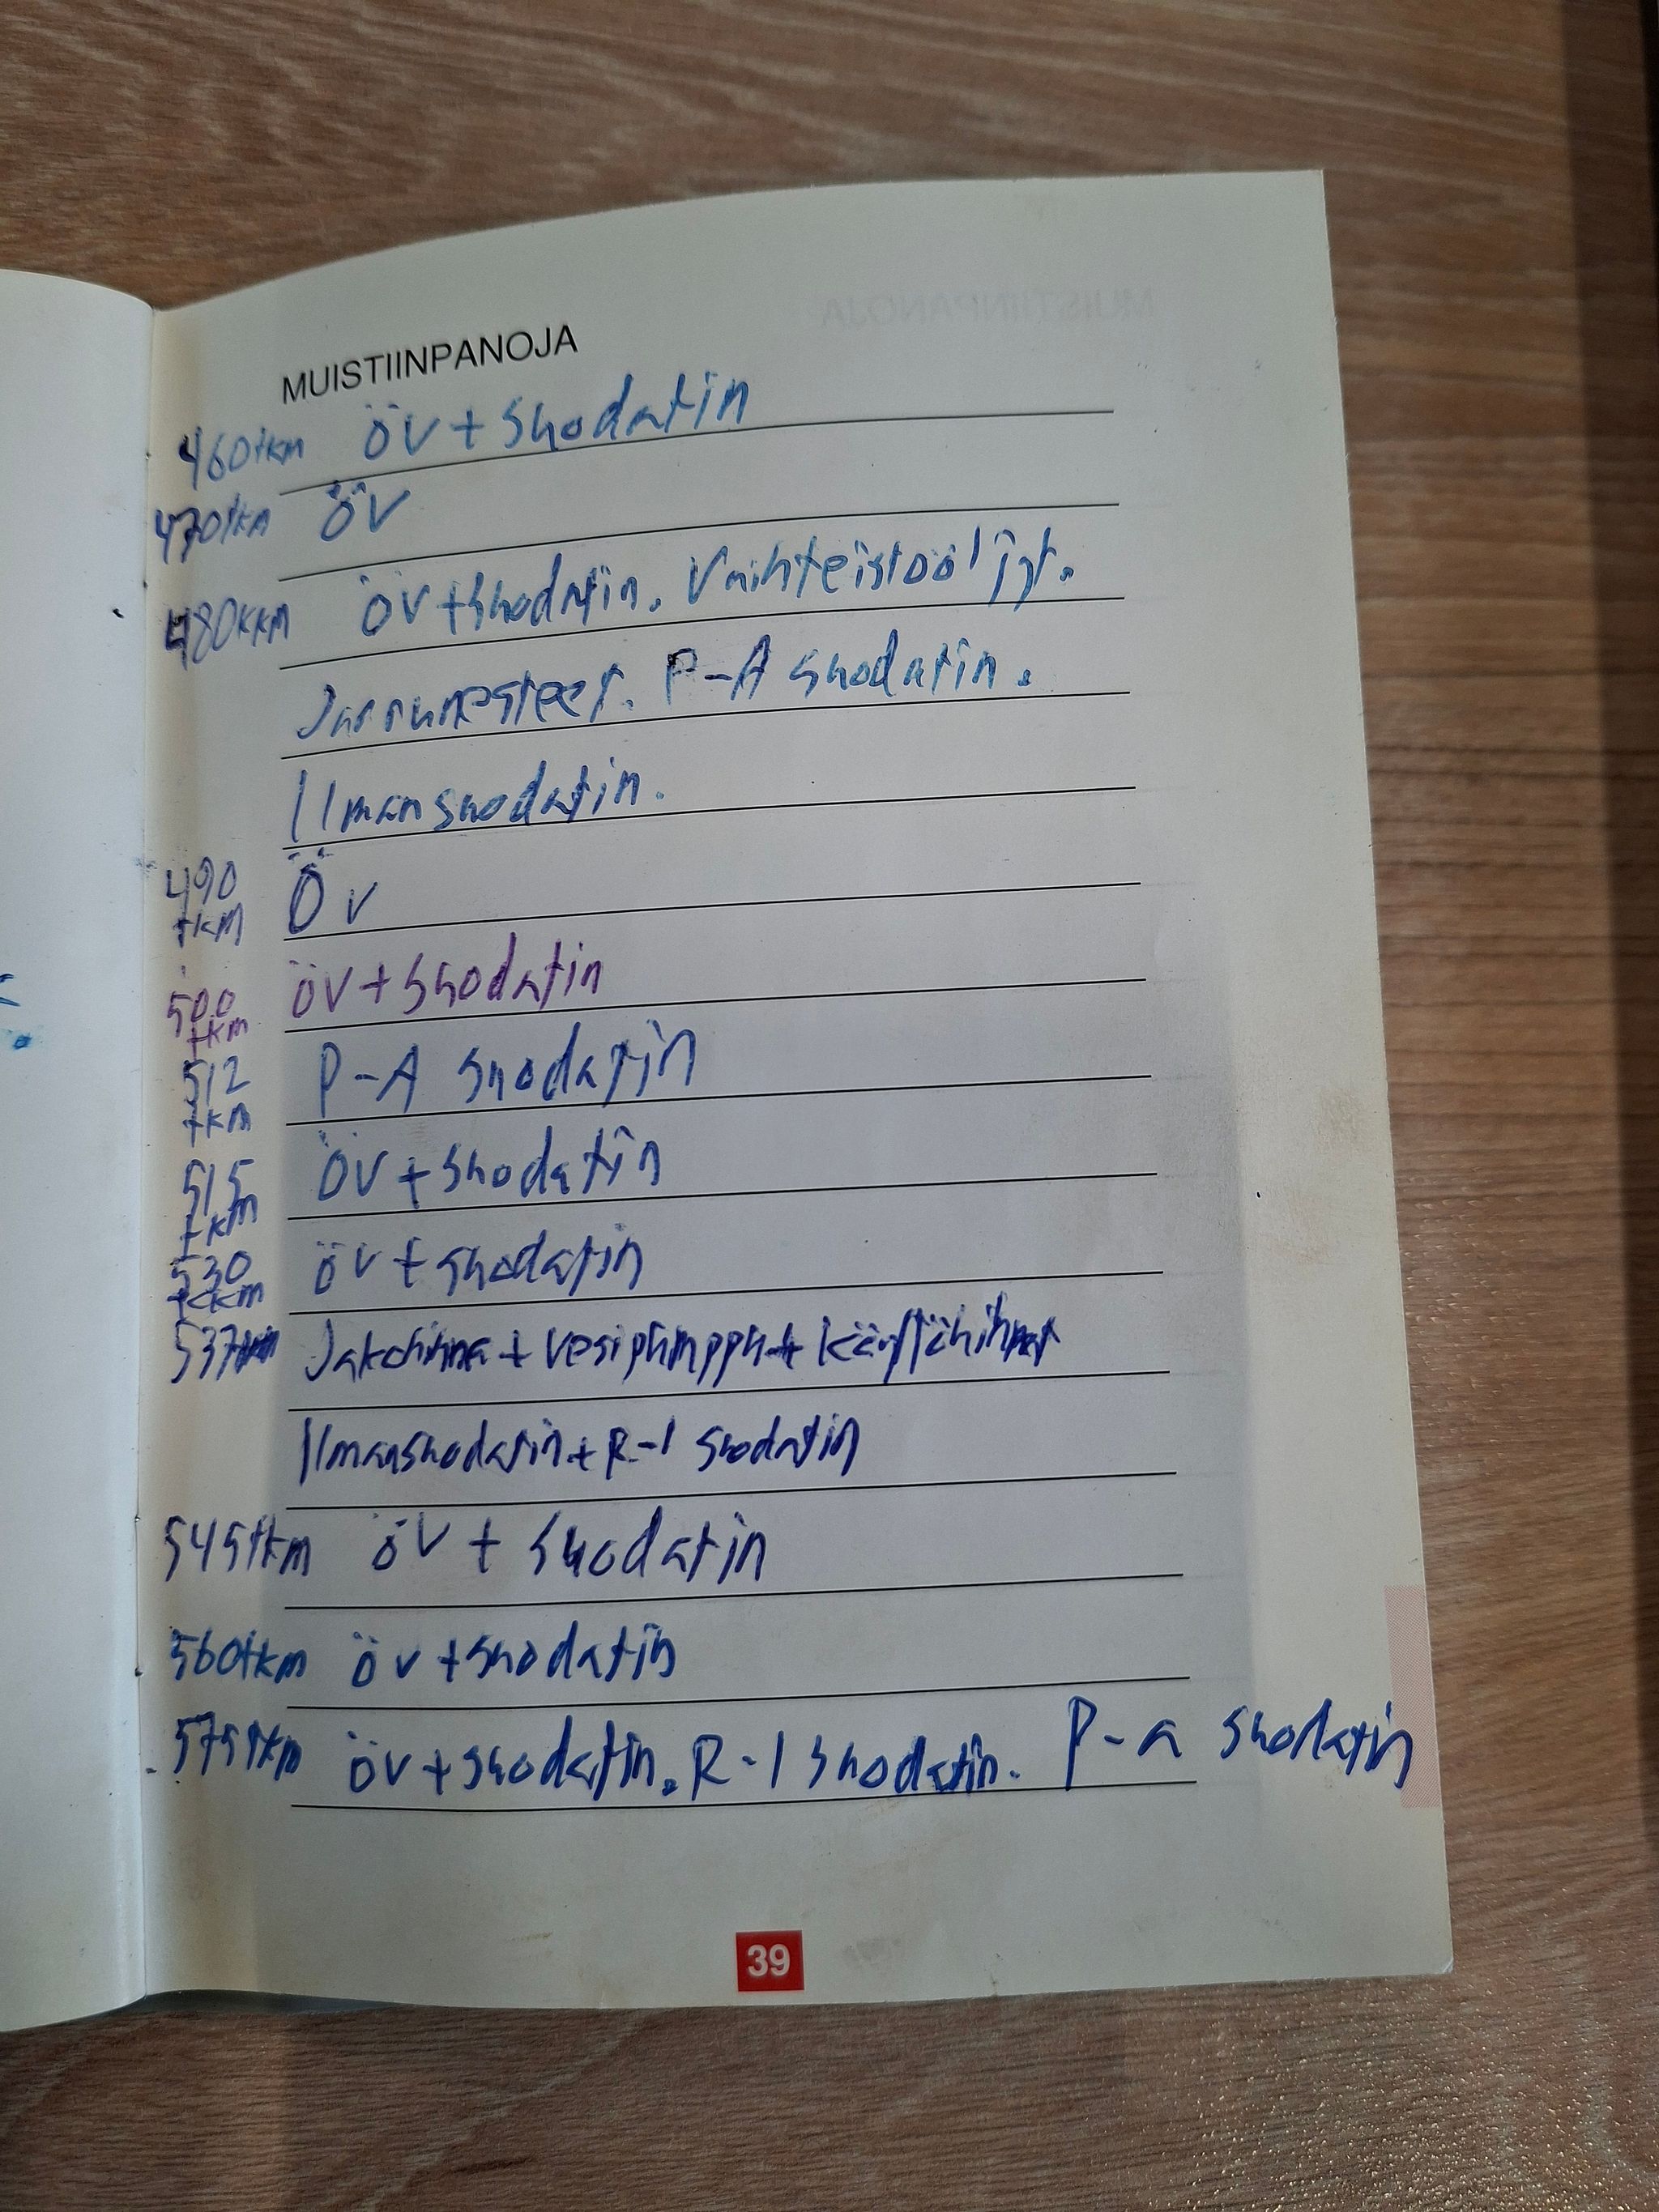 MUISTIINPANOJA
460tkm ÖV + Suodatin
470tkm ÖV
480kkm ÖV + Suodatin. Vaihteistoöljyt.
Jarrunesteet. P-A suodatin.
Ilmansuodatin.
490 tkm ÖV
500 tkm ÖV + Suodatin
512 tkm P-A suodatin
515 tkm ÖV + suodatin
530 tkm ÖV + suodatin
537tkm Jakohihna + vesipumppu + käyttöhihnat
Ilmansuodatin + R-1 suodatin
545tkm ÖV + suodatin
560tkm ÖV + suodatin
575tkm ÖV + suodatin. R-1 suodatin. P-a suodatin
39